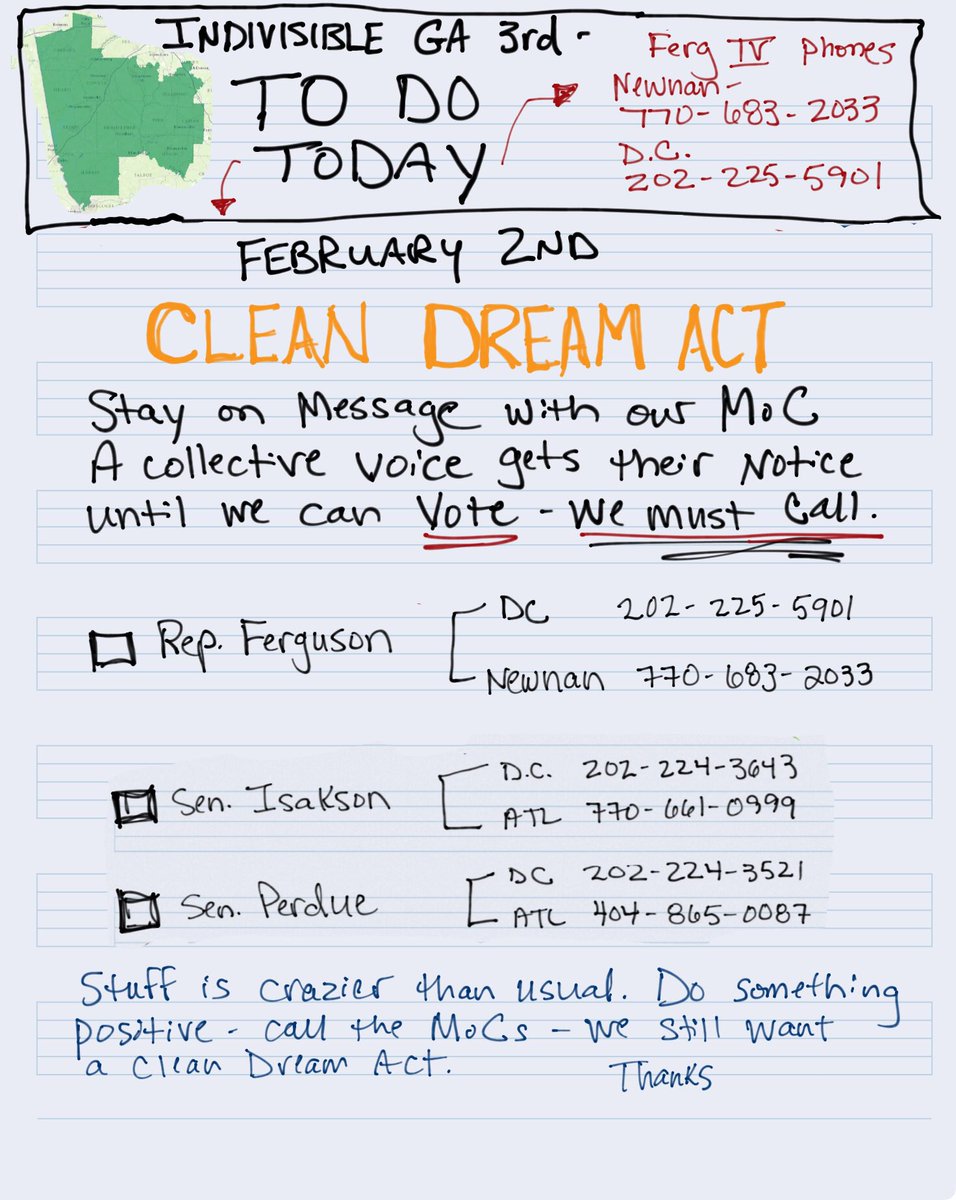 INDIVISIBLE GA 3rd -
TO DO
TODAY
Ferg IV phones
Newnan -
770-683-2033
D.C.
202-225-5901
FEBRUARY 2ND
CLEAN DREAM ACT
Stay on Message with our MoC
A collective voice gets their Notice
until we can Vote - We must Call.
Rep. Ferguson
DC 202-225-5901
Newnan 770-683-2033
Sen. Isakson
D.C. 202-224-3643
ATL 770-661-0999
Sen. Perdue
DC 202-224-3521
ATL 404-865-0087
Stuff is crazier than usual. Do something
positive - call the MoCs - we still want
a Clean Dream Act.
Thanks